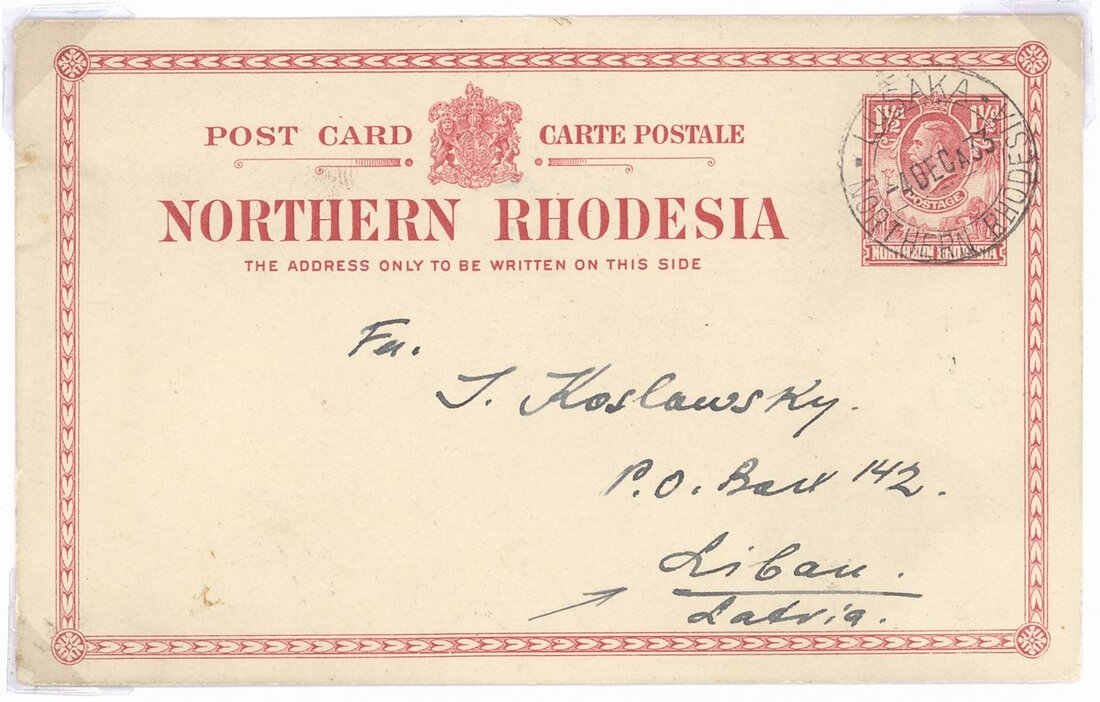 POST CARD CARTE POSTALE
NORTHERN RHODESIA
THE ADDRESS ONLY TO BE WRITTEN ON THIS SIDE
1½ 1½
POSTAGE
NORTHERN RHODESIA
LUSAKA · NORTHERN RHODESIA ·
4 DEC 33
Fa.
J. Koslawsky.
P.O. Box 142.
Libau.
Latvia.